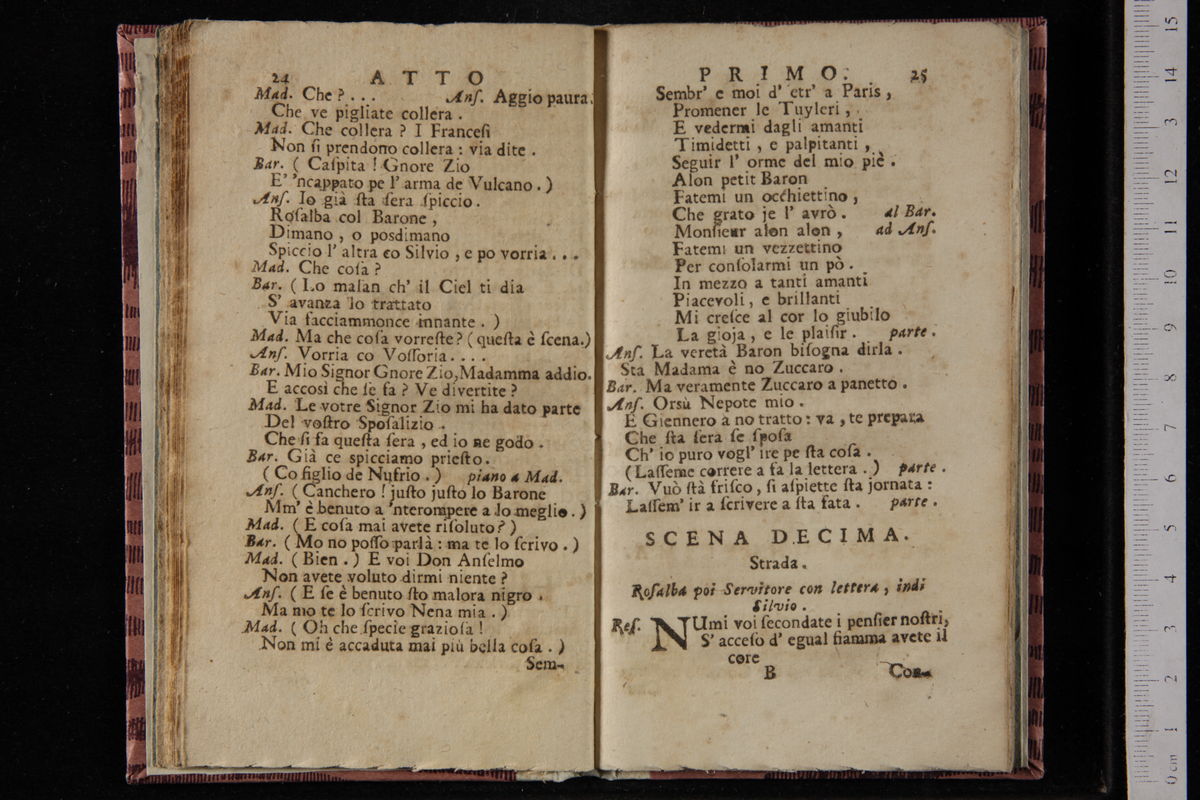 24 ATTO
Mad. Che ? . . . Anſ. Aggio paura.
Che ve pigliate collera .
Mad. Che collera ? I Franceſi
Non ſi prendono collera : via dite .
Bar. ( Caſpita ! Gnore Zio
E' 'ncappato pe l' arma de Vulcano . )
Anſ. Io già ſta ſera ſpiccio .
Roſalba col Barone ,
Dimano , o posdimano
Spiccio l' altra co Silvio , e po vorria . . .
Mad. Che coſa ?
Bar. ( Lo malan ch' il Ciel ti dia
S' avanza lo trattato
Via facciammonce innante . )
Mad. Ma che coſa vorreſte ? ( queſta è ſcena.)
Anſ. Vorria co Voſſoria . . . .
Bar. Mio Signor Gnore Zio, Madamma addio.
E accosì che ſe fa ? Ve divertite ?
Mad. Le votre Signor Zio mi ha dato parte
Del voſtro Spoſalizio .
Che ſi fa queſta ſera , ed io ne godo .
Bar. Già ce spicciamo prieſto .
( Co figlio de Nufrio . ) piano a Mad.
Anſ. ( Canchero ! juſto juſto lo Barone
Mm' è benuto a 'nterompere a lo meglio . )
Mad. ( E coſa mai avete riſoluto ? )
Bar. ( Mo no poſſo parlà : ma te lo ſcrivo . )
Mad. ( Bien . ) E voi Don Anſelmo
Non avete voluto dirmi niente ?
Anſ. ( E ſe è benuto ſto malora nigro .
Ma mo te lo ſcrivo Nena mia . )
Mad. ( Oh che ſpecie grazioſa !
Non mi è accaduta mai più bella coſa . )
Sem-
PRIMO. 25
Sembr' e moi d' etr' a Paris ,
Promener le Tuyleri ,
E vedermi dagli amanti
Timidetti , e palpitanti ,
Seguir l' orme del mio piè .
Alon petit Baron
Fatemi un occhiettino ,
Che grato je l' avrò . al Bar.
Monſieur alon alon , ad Anſ.
Fatemi un vezzettino
Per conſolarmi un pò .
In mezzo a tanti amanti
Piacevoli , e brillanti
Mi creſce al cor lo giubilo
La gioja , e le plaiſir . parte .
Anſ. La veretà Baron biſogna dirla .
Sta Madama è no Zuccaro .
Bar. Ma veramente Zuccaro a panetto .
Anſ. Orsù Nepote mio .
E Giennero a no tratto : va , te prepara
Che ſta ſera ſe ſpoſa
Ch' io puro vogl' ire pe ſta coſa .
( Laſſeme correre a fa la lettera . ) parte .
Bar. Vuò ſtà friſco , ſi aſpiette ſta jornata :
Laſſem' ir a ſcrivere a ſta fata . parte .
SCENA DECIMA.
Strada .
Roſalba poi Servitore con lettera , indi
Silvio .
Roſ. NUmi voi ſecondate i penſier noſtri,
S' acceſo d' egual fiamma avete il
core
B Con-